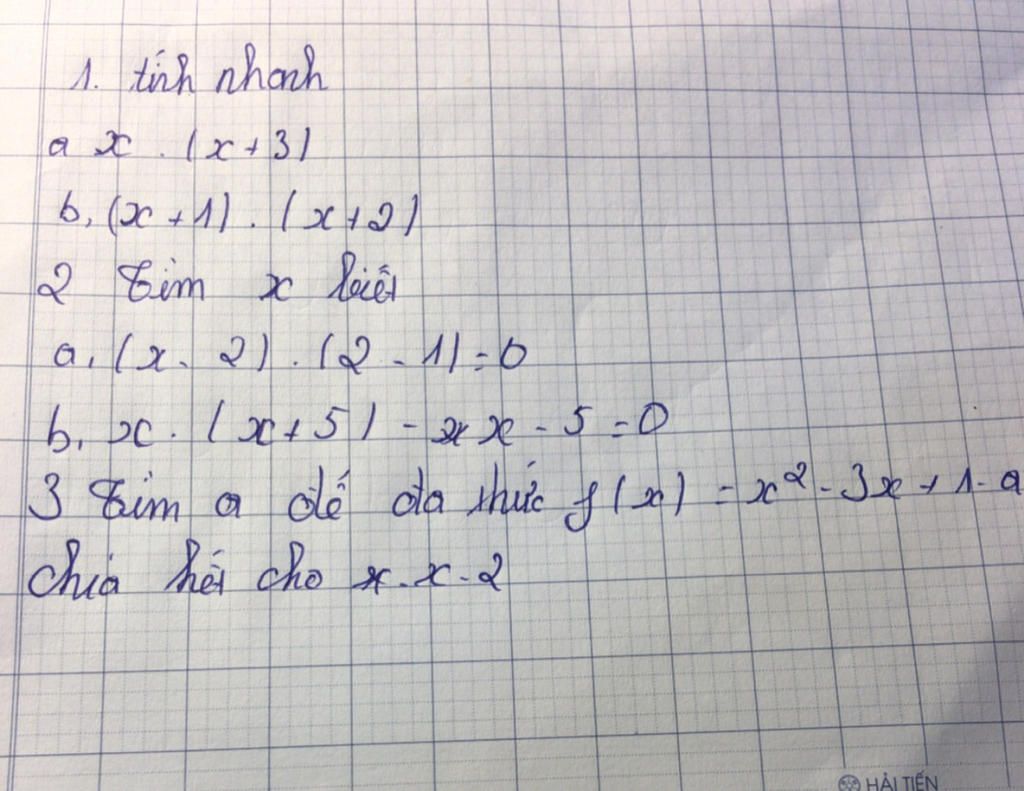 1. tính nhanh
a x . (x+3)
b, (x+1) . (x+2)
2 Tìm x biết
a, (x - 2) . (2 - 1) = 0
b, x . (x+5) - x - 5 = 0
3 Tìm a để đa thức f(x) = x² - 3x + 1 - a
chia hết cho x - 2
HẢI TIẾN